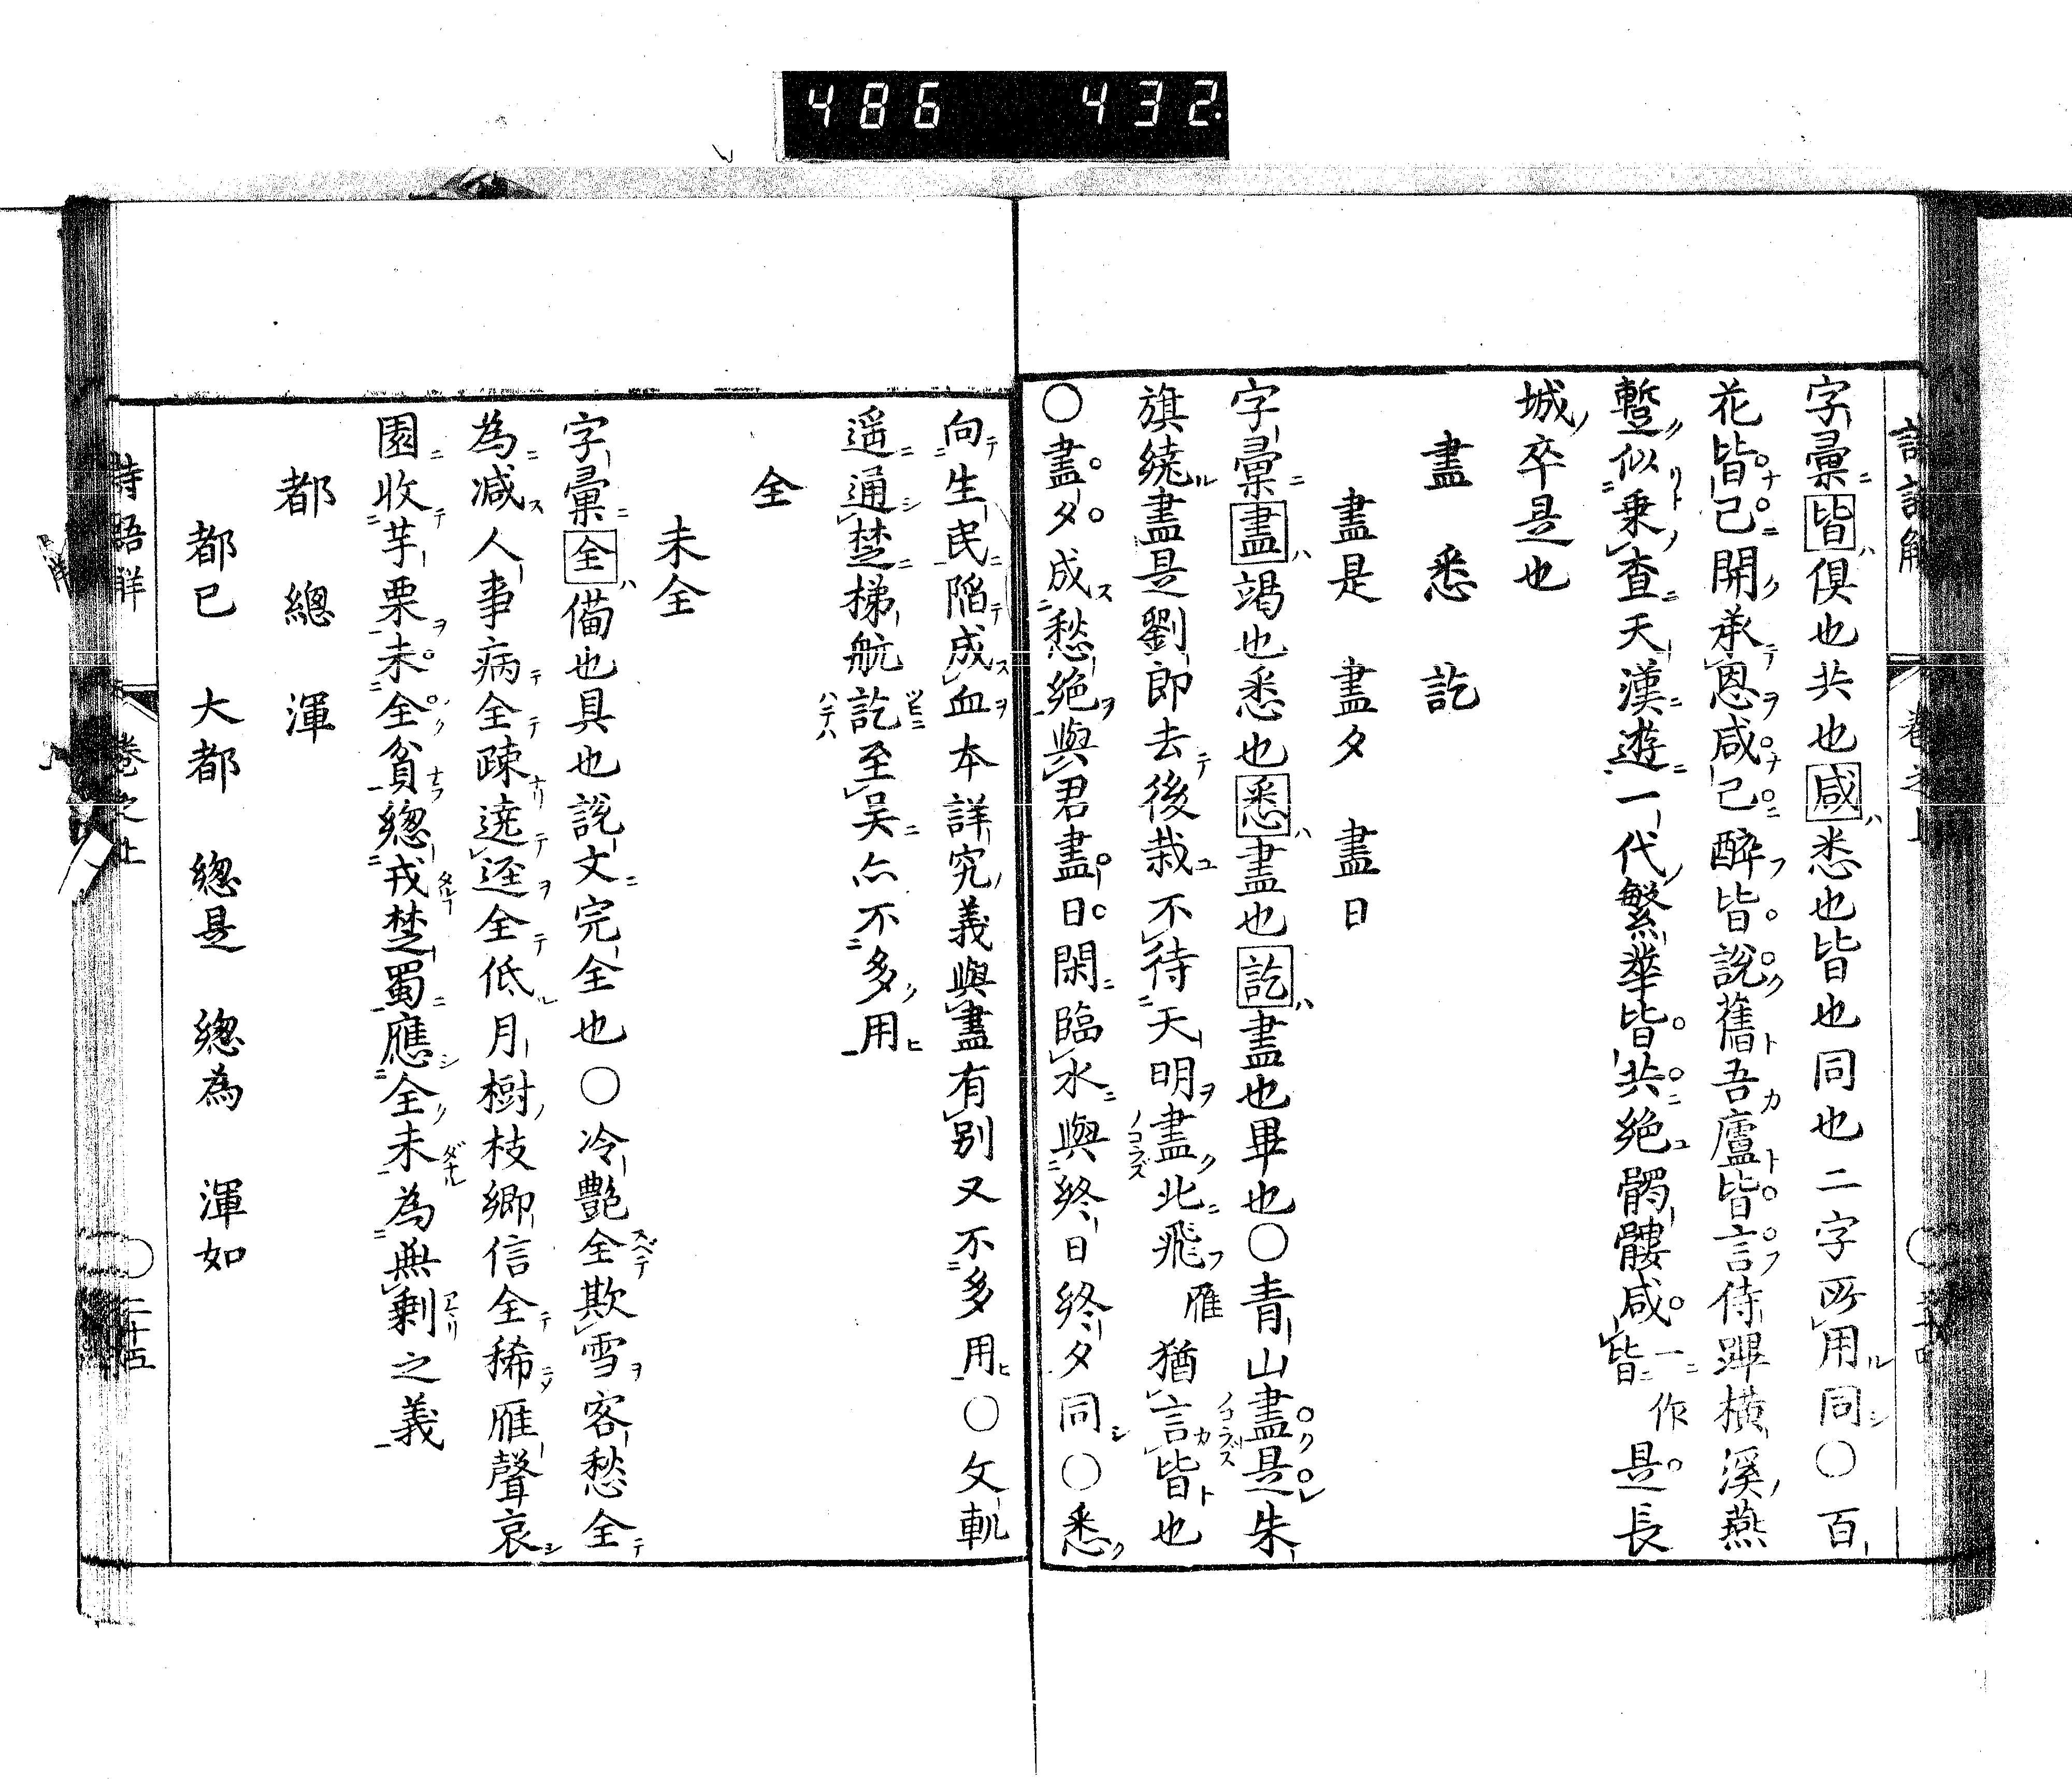 486 432.
字彙皆ハ俱也共也咸ハ悉也皆也同也二字所用同○百
花皆已開承恩咸已醉皆說舊吾廬皆言侍蹕橫溪燕
蹔似乘查天漢遊一代繁華皆共絕髑髏咸皆一作是長
城卒是也
盡 悉 訖
盡是 盡夕 盡日
字彙盡ハ竭也悉也悉ハ盡也訖ハ盡也畢也○青山盡是朱
旗繞盡是劉郎去後栽不待天明盡北飛雁猶言皆也
○盡夕成愁絕與君盡日閑臨水與終日終夕同○悉
向生民陷成血本詳究義與盡有別又不多用○文軌
遥通楚梯航訖至吴亦不多用
全
未全
字彙全ハ備也具也說文完全也○冷艷全欺雪客愁全
為減人事病全疎遶逕全低月樹枝卿信全稀雁聲哀
園收芋栗未全貧總戎楚蜀應全未為無剩之義
都 總 渾
都已 大都 總是 總為 渾如
詩語解 卷之上 二十五